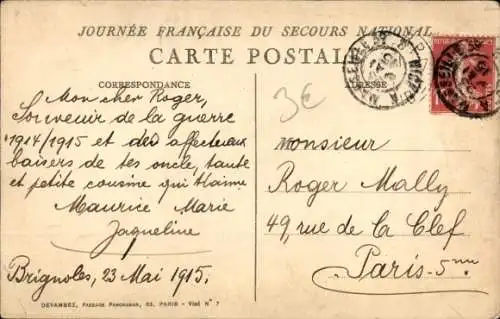 JOURNÉE FRANÇAISE DU SECOURS NATIONAL
CARTE POSTALE
CORRESPONDANCE
ADRESSE
3€
Mon cher Roger,
Souvenir de la guerre
1914/1915 et des affectueux
baisers de tes oncle, tante
et petite cousine qui t'aime
Maurice Marie
Jaqueline
Brignoles, 23 Mai 1915.
Monsieur
Roger Mally
49, rue de la Clef
Paris-5me
DEVAMBEZ, PASSAGE PANORAMAS, 63, PARIS - Visé N° 7